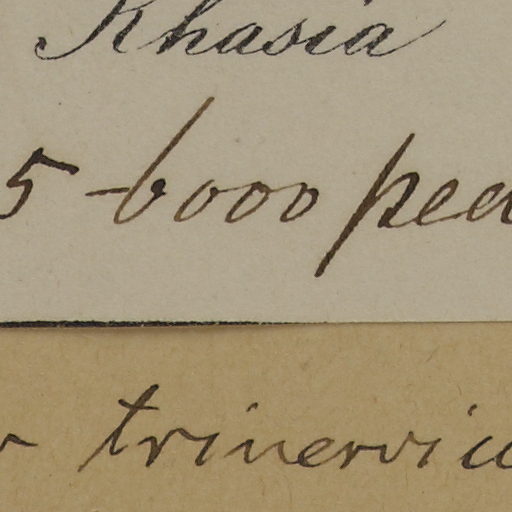 Khasia
5-6000 ped
trinerviu